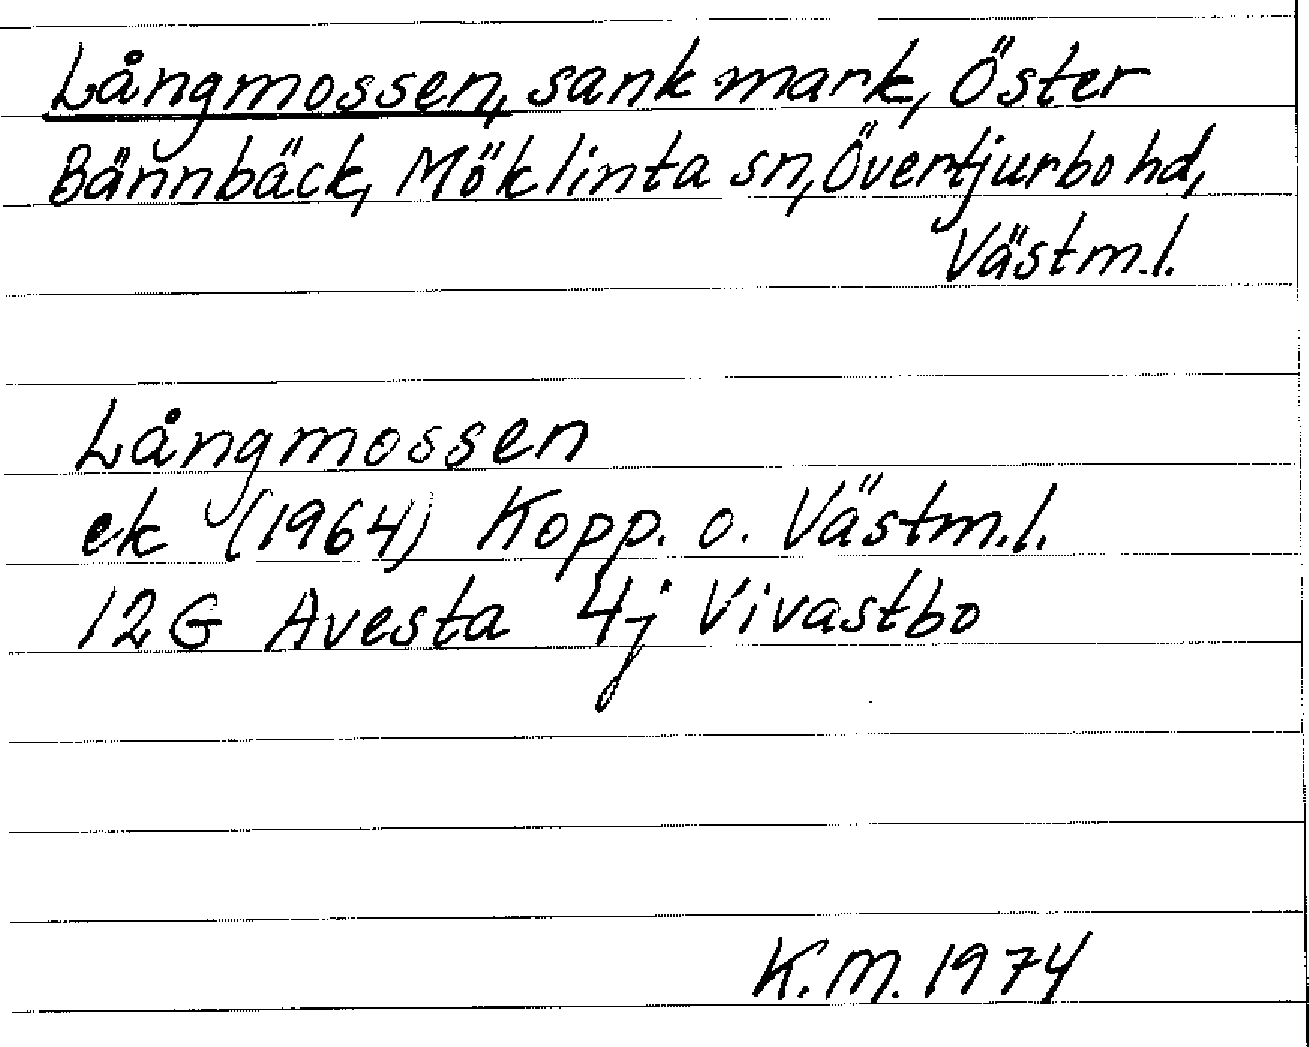 Långmossen, sank mark, Öster
Bännbäck, Möklinta sn, Övertjurbo hd,
Västm.l.
Långmossen
ek (1964) Kopp. o. Västm.l.
12G Avesta 4j Vivastbo
K.M. 1974